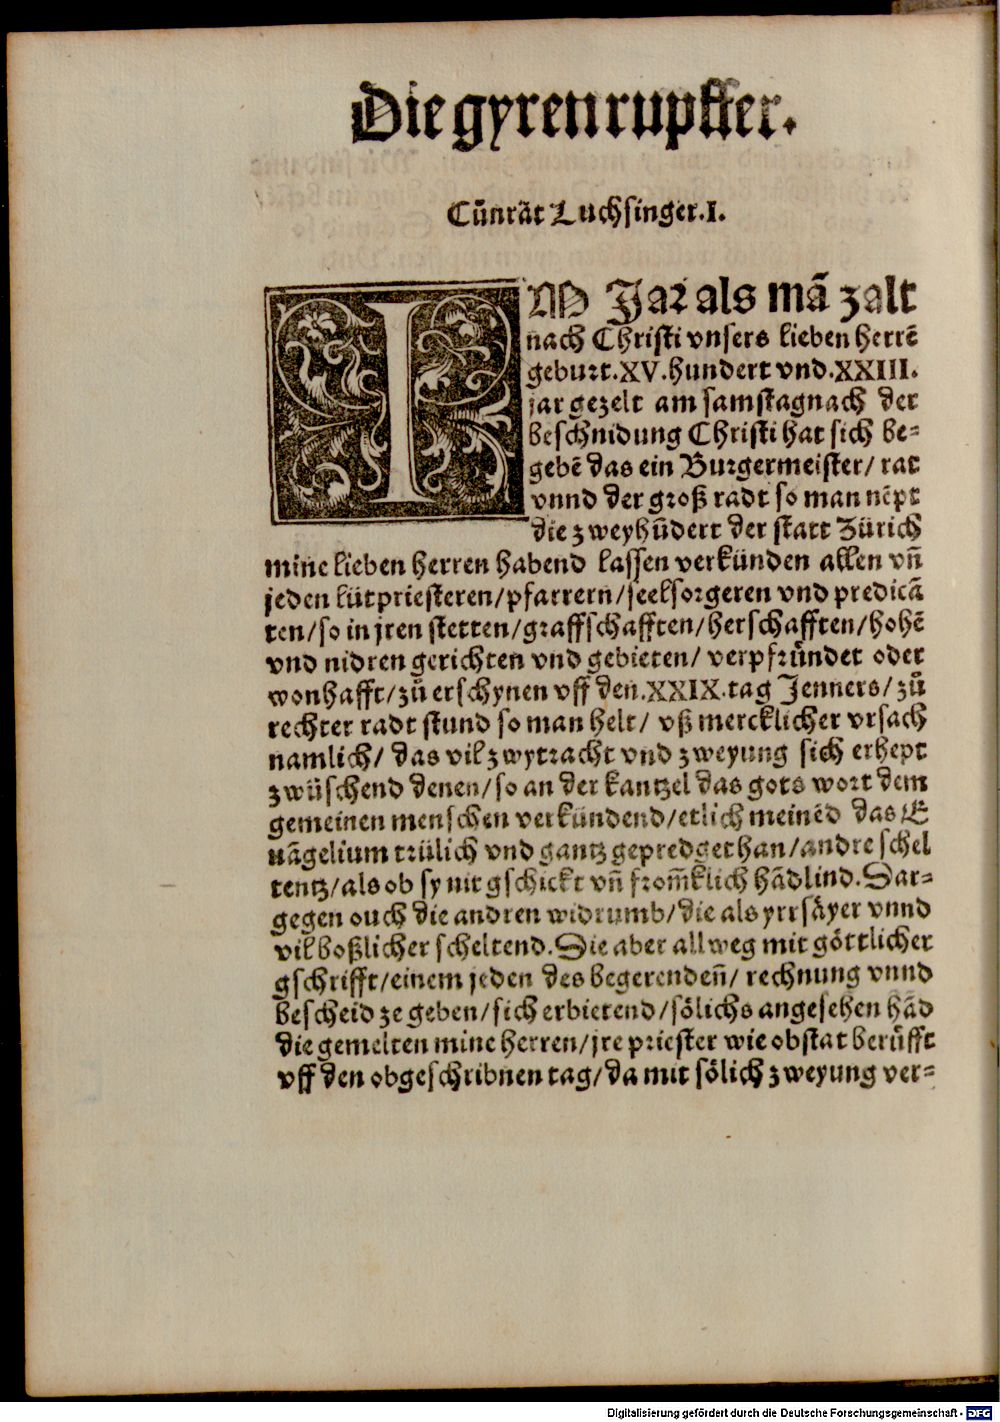 Die gyrenrupffer.
Cůnrāt Luchsinger.I.
IM Jar als mā zalt
nach Christi vnsers lieben herrē
geburt.XV.hundert vnd.XXIII.
jar gezelt am samstag nach der
beschnidung Christi hat sich be-
gebē das ein Burgermeister/ rat
vnnd der groß radt so man nēpt
die zweyhūdert der statt Zürich
mine lieben herren habend lassen verkünden allen vn̄
jeden lütpriesteren/pfarrern/seelsorgeren vnd predicā
ten/so in jren stetten/graffschafften/herschafften/hohē
vnd nidren gerichten vnd gebieten/ verpfründet oder
wonhafft/zů erschynen vff den.XXIX.tag Jenners/zů
rechter radt stund so man helt/ vß mercklicher vrsach
namlich/ das vil zwytracht vnd zweyung sich erhept
zwüschend denen/so an der kantzel das gots wort dem
gemeinen menschen verkündend/etlich meinēd das E
uāgelium trülich vnd gantz gepredget han/andre schel
tentz/als ob sy nit gschickt vn̄ from̄klich hādlind.Dar-
gegen ouch die andren widrumb/die als yrrsäyer vnnd
vil boßlicher scheltend.Die aber allweg mit göttlicher
gschrifft/einem jeden des begerenden̄/ rechnung vnnd
bescheid ze geben/sich erbietend/sölichs angesehen hād
die gemelten mine herren/jre priester wie obstat berüfft
vff den obgeschribnen tag/da mit sölich zweyung ver-
Digitalisierung gefördert durch die Deutsche Forschungsgemeinschaft - DFG